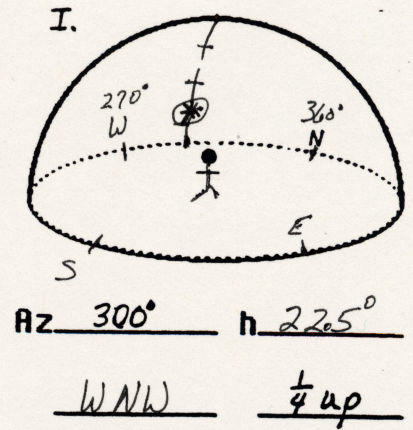 I.
270°
W
360°
N
S
E
Az 300° h 22.5°
WNW 1/4 up